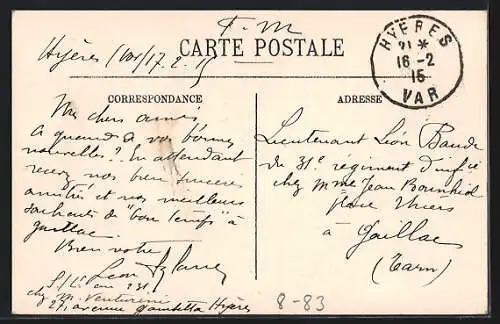 F. M
Hyères (Var) 17.2.15
CARTE POSTALE
HYÈRES
21 *
16 -2
15
VAR
CORRESPONDANCE
ADRESSE
Mes chers amis
à quand de vos bonnes
nouvelles ? En attendant
recevez nos bien sincères
amitiés et nos meilleurs
souhaits de "bon temps" à
Gaillac.
Bien votre
Léon
S/Lt au 231
chez M. Venturini
27, avenue Gambetta Hyères
Lieutenant Léon Baude
du 31e régiment d'inf ie
chez Mme Jean
place Thiers
à Gaillac
(Tarn)
8-83